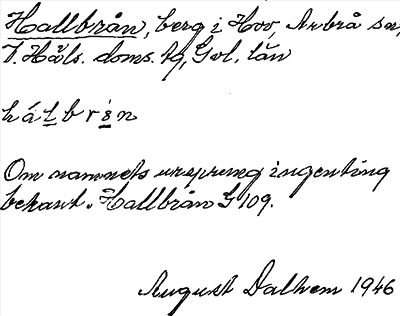 Hallbrån, berg i Hov, Arbrå sn,
V. Häls. doms. tg, Gvl. län
hálbrån
Om namnets ursprung ingenting
bekant. Hallbrån G 109.
August Dalhem 1946